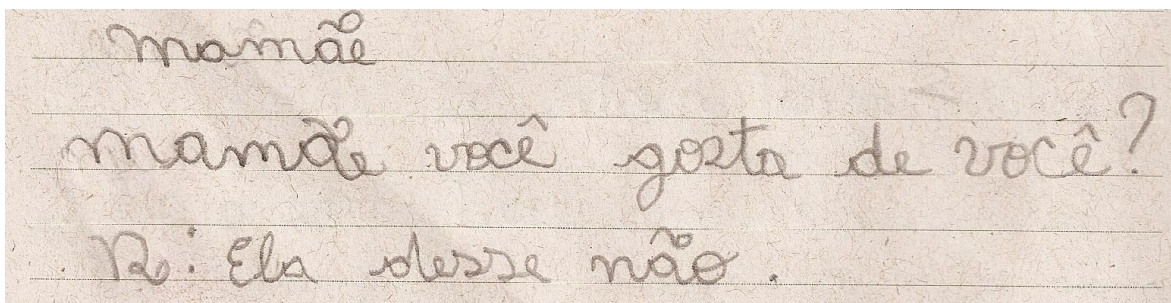 mamãe
mamãe você gosta de você?
R: Ela desse não.